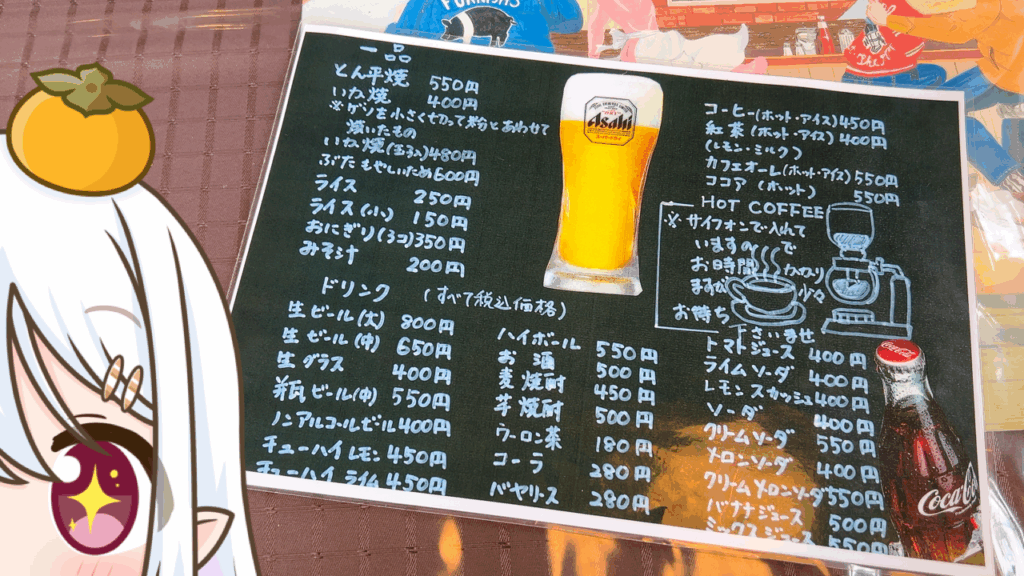 一品
とん平焼 550円
いか焼 400円
※ゲソを小さく切って粉とあわせて
焼いたもの
いか焼(玉子入)480円
ぶたもやしいため600円
ライス 250円
ライス(小) 150円
おにぎり(2コ)350円
みそ汁 200円
ドリンク (すべて税込価格)
生ビール(大) 800円
生ビール(中) 650円
生グラス 400円
瓶ビール(中) 550円
ノンアルコールビール400円
チューハイレモン 450円
チューハイライム 450円
Asahi
ハイボール 550円
お酒 500円
麦焼酎 450円
芋焼酎 500円
ウーロン茶 180円
コーラ 280円
バヤリース 280円
コーヒー(ホット・アイス)450円
紅茶(ホット・アイス) 400円
(レモン・ミルク)
カフェオーレ(ホット・アイス)550円
ココア (ホット) 550円
HOT COFFEE
※サイフォンで入れて
いますので
お時間かかり
ますが 少々
お待ち
下さいませ
トマトジュース 400円
ライムソーダ 400円
レモンスカッシュ400円
ソーダ 400円
クリームソーダ 550円
メロンソーダ 400円
クリームメロンソーダ550円
バナナジュース 500円
ミックスジュース 550円
Coca-Cola